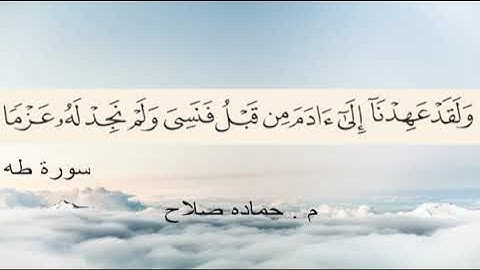 وَلَقَدْ عَهِدْنَآ إِلَىٰٓ ءَادَمَ مِن قَبْلُ فَنَسِىَ وَلَمْ نَجِدْ لَهُۥ عَزْمًا
سورة طه
م . حماده صلاح